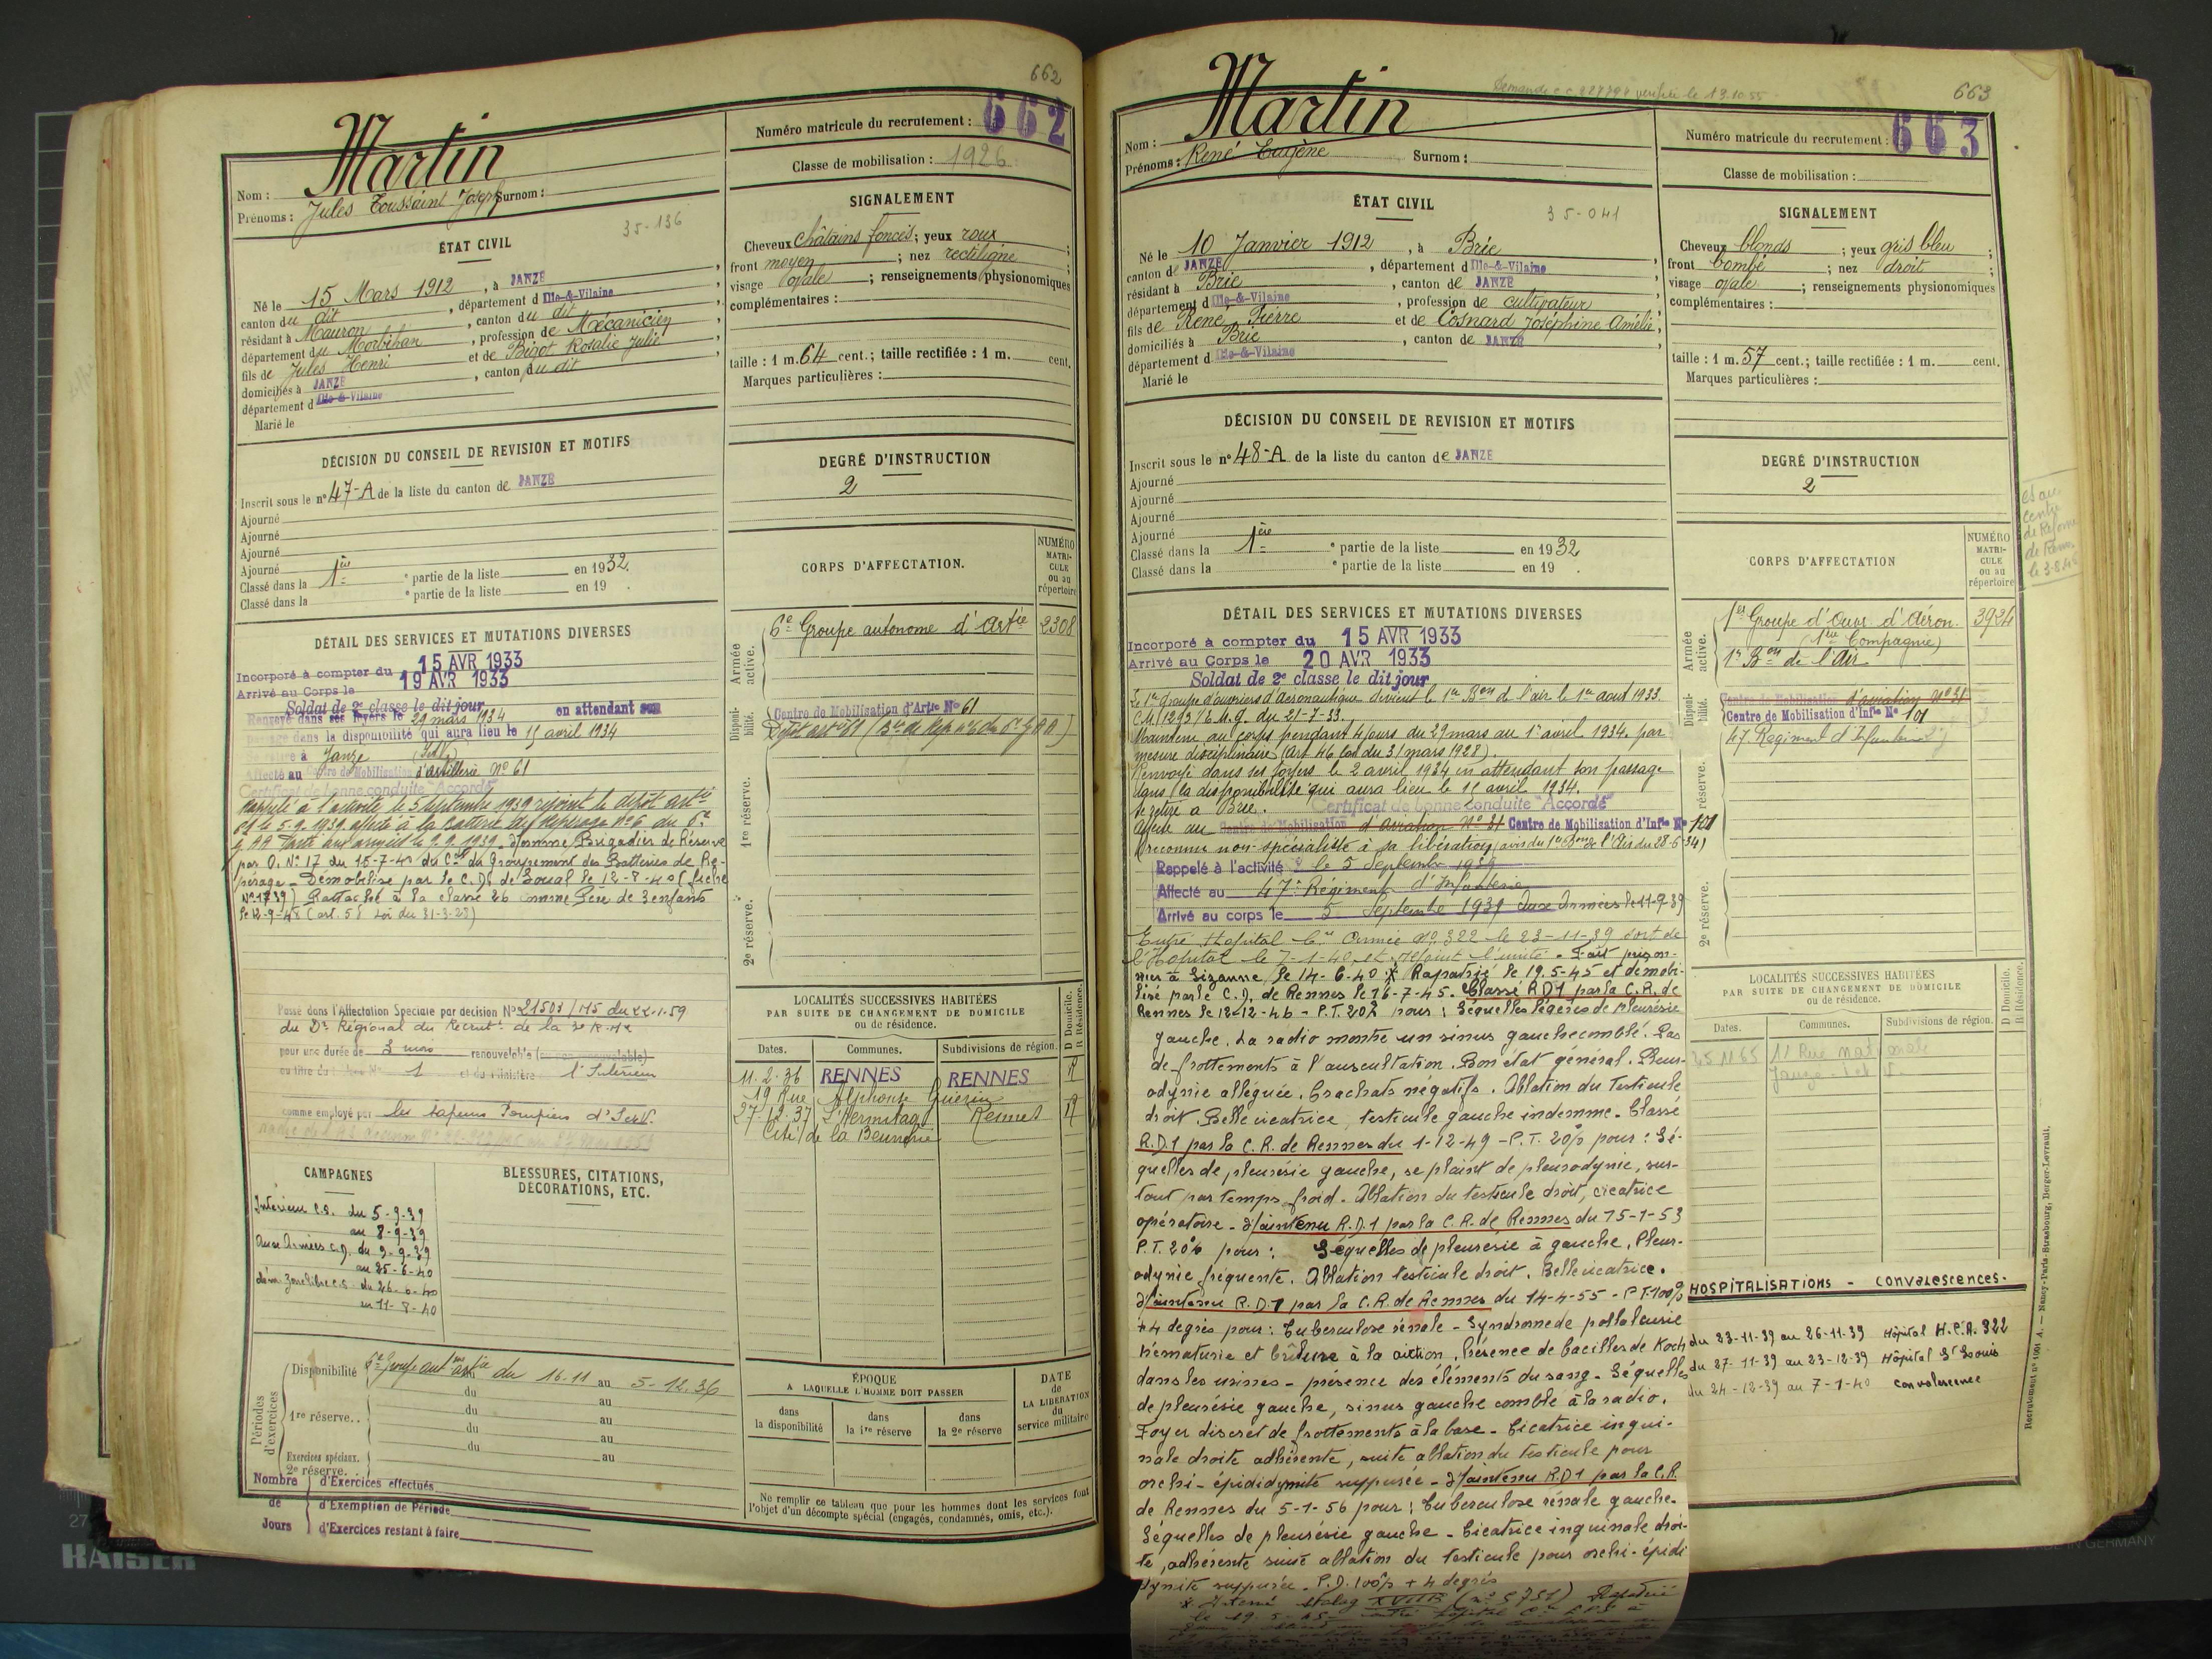 662
Martin
Nom :
Prénoms : Jules Toussaint Joseph Surnom :
Numéro matricule du recrutement : 662
Classe de mobilisation : 1926
35-136
ÉTAT CIVIL
Né le 15 Mars 1912, à JANZÉ
canton du dit, département d'Ille-&-Vilaine
résidant à Mauron, canton du dit
département du Morbihan, profession de Mécanicien
fils de Jules Henri et de Bigot Rosalie Julie
domiciliés à JANZÉ, canton du dit
département d'Ille-&-Vilaine
Marié le
SIGNALEMENT
Cheveux châtains foncés ; yeux roux ;
front moyen ; nez rectiligne ;
visage ovale ; renseignements physionomiques
complémentaires :
taille : 1 m. 64 cent. ; taille rectifiée : 1 m. cent.
Marques particulières :
DÉCISION DU CONSEIL DE REVISION ET MOTIFS
Inscrit sous le n° 47-A de la liste du canton de JANZÉ
Ajourné
Ajourné
Ajourné
Ajourné
Classé dans la 1ère e partie de la liste en 1932.
Classé dans la e partie de la liste en 19 .
DEGRÉ D'INSTRUCTION
2
DÉTAIL DES SERVICES ET MUTATIONS DIVERSES
Incorporé à compter du 15 AVR 1933
Arrivé au Corps le 19 AVR 1933
Soldat de 2e classe le dit jour
Renvoyé dans ses foyers le 29 mars 1934 en attendant son
passage dans la disponibilité qui aura lieu le 15 avril 1934
Se retire à Janzé (I&V)
Affecté au Centre de Mobilisation d'artillerie N° 61
Certificat de bonne conduite "Accordé"
Rappelé à l'activité le 5 septembre 1939 rejoint le dépôt artie
61 le 5.9.1939 affecté à la Batterie de Repérage N°6 du 6e
G.A.A. Parti aux armées le 9.9.1939. Nommé Brigadier de Réserve
par O. N° 17 du 15-7-40 du Ct du Groupement des Batteries de Re-
pérage - Démobilisé par le C.D. de Soual le 12-8-40 (fiche
N° 1739) Rattaché à la classe 26 comme Père de 3 enfants
le 12-9-45 (art. 58 Loi du 31-3-28)
Passé dans l'Affectation Spéciale par décision N° 21503/MS du 22-1-59
du Dr Régional du Recrutt de la 3e R.Mre
pour une durée de 3 mois renouvelable (ou non renouvelable)
1 et du Ministère l'Intérieur
comme employé par les sapeurs Pompiers d'I.et V.
CORPS D'AFFECTATION.
NUMÉRO MATRI-CULE ou au répertoire
Armée active.
6e Groupe autonome d'Artie 2308
Disponi-bilité.
Centre de Mobilisation d'Artie N° 61
Dépôt artie 61 (Bie de Rep n°6 du 6e G.A.A)
1re réserve.
2e réserve.
LOCALITÉS SUCCESSIVES HABITÉES
PAR SUITE DE CHANGEMENT DE DOMICILE
ou de résidence.
D Domicile.
R Résidence.
Dates. Communes. Subdivisions de région.
11-2-36 RENNES RENNES R
19 Rue Alphonse Guérin
27-12-37 L'Hermitage Rennes R
Cité de la Beuvrie
CAMPAGNES
Intérieur C.S. du 5-9-39
au 8-9-39
Aux Armées C.D. du 9-9-39
au 25-6-40
dém zone libre C.S. du 26-6-40
au 11-8-40
BLESSURES, CITATIONS, DÉCORATIONS, ETC.
Périodes d'exercices
Disponibilité 6e Groupe autme artie du 16.11 au 5-12.36
du au
1re réserve. . du au
du au
Exercices spéciaux. du au
2e réserve. . au
Nombre de Jours
d'Exercices effectués
d'Exemption de Période
d'Exercices restant à faire
ÉPOQUE
A LAQUELLE L'HOMME DOIT PASSER
dans la disponibilité
dans la 1re réserve
dans la 2e réserve
DATE de LA LIBÉRATION du service militaire
Ne remplir ce tableau que pour les hommes dont les services font
l'objet d'un décompte spécial (engagés, condamnés, omis, etc.).
663
Demande C.C. 827794 vérifiée le 13.10.55
Martin
Nom :
Prénoms : René Eugène Surnom :
Numéro matricule du recrutement : 663
Classe de mobilisation :
ÉTAT CIVIL
35-041
Né le 10 Janvier 1912, à Brie
canton de JANZÉ, département d'Ille-&-Vilaine
résidant à Brie, canton de JANZÉ
département d'Ille-&-Vilaine, profession de cultivateur
fils de René Pierre et de Cosnard Joséphine Amélie
domiciliés à Brie, canton de JANZÉ
département d'Ille-&-Vilaine
Marié le
SIGNALEMENT
Cheveux blonds ; yeux gris bleu ;
front bombé ; nez droit ;
visage ovale ; renseignements physionomiques
complémentaires :
taille : 1 m. 57 cent. ; taille rectifiée : 1 m. cent.
Marques particulières :
DÉCISION DU CONSEIL DE REVISION ET MOTIFS
Inscrit sous le n° 48-A de la liste du canton de JANZÉ
Ajourné
Ajourné
Ajourné
Ajourné
Classé dans la 1ère e partie de la liste en 1932.
Classé dans la e partie de la liste en 19 .
DEGRÉ D'INSTRUCTION
2
DÉTAIL DES SERVICES ET MUTATIONS DIVERSES
Incorporé à compter du 15 AVR 1933
Arrivé au Corps le 20 AVR 1933
Soldat de 2e classe le dit jour
Le 1er Groupe d'ouvriers d'aéronautique devient le 1er Bon de l'air le 1er août 1933.
C.M. 1295/E.M.G. du 21-7-33.
Maintenu au corps pendant 4 jours du 29 mars au 1er avril 1934 par
mesure disciplinaire (Art 46 loi du 31 mars 1928).
Renvoyé dans ses foyers le 2 avril 1934 en attendant son passage
dans la disponibilité qui aura lieu le 15 avril 1934.
Se retire à Brie. Certificat de bonne conduite "Accordé"
Affecté au Centre de Mobilisation d'aviation N° 31 Centre de Mobilisation d'Infie N° 101
(reconnu non-spécialiste à sa libération (avis du 1er Bon de l'Air du 28-6-34)
Rappelé à l'activité le 5 Septembre 1939
Affecté au 47e Régiment d'Infanterie
Arrivé au corps le 5 Septembre 1939 aux Armées le 11-9-39
Entré Hôpital Cre Armée N° 322 le 23-11-39 sort de
l'Hôpital le 7-1-40 et rejoint l'unité. Fait prison-
nier à Sézanne le 14-6-40 * Rapatrié le 19-5-45 et démobi-
lisé par le C.D. de Rennes le 16-7-45. Classé RD1 par la C.R. de
Rennes le 12-12-46 - P.T. 20% pour : Séquelles légères de pleurésie
gauche. La radio montre un sinus gauche comblé. Pas
de frottements à l'auscultation. Bon état général. Pleur-
odynie alléguée. Crachats négatifs. Ablation du testicule
droit. Belle cicatrice, testicule gauche indemme. Classé
R.D.1 par la C.R. de Rennes du 1-12-49 - P.T. 20% pour : Sé-
quelles de pleurésie gauche, se plaint de pleurodynie, sur-
tout par temps froid. Ablation du testicule droit, cicatrice
opératoire - Maintenu R.D.1 par la C.R. de Rennes du 15-1-53
P.T. 20% pour : Séquelles de pleurésie à gauche, Pleur-
odynie fréquente. Ablation testicule droit. Belle cicatrice.
Maintenu R.D.1 par la C.R. de Rennes du 14-4-55 - P.T. 100%
+ 4 degrés pour : Tuberculose rénale - Syndrome de pollakiurie
hématurie et brûlure à la miction, Présence de bacilles de Koch
dans les urines - présence des éléments du sang. Séquelles
de pleurésie gauche, sinus gauche comblé à la radio.
Foyer discret de frottements à la base - Cicatrice ingui-
nale droite adhérente, suite ablation du testicule pour
orchi-épididymite suppurée - Maintenu R.D1 par la C.R.
de Rennes du 5-1-56 pour : Tuberculose rénale gauche.
Séquelles de pleurésie gauche - Cicatrice inguinale droi-
te, adhérente suite ablation du testicule pour orchi-épidi
dymite suppurée. P.D. 100% + 4 degrés
* Interné stalag (n° 5751) Rapatrié
le 19-5-45
CORPS D'AFFECTATION
NUMÉRO MATRI-CULE ou au répertoire
Armée active.
1er Groupe d'Ouvr. d'Aéron. 3924
(1ère Compagnie)
1er Bon de l'Air
Disponi-bilité.
Centre de Mobilisation d'aviation N° 31
Centre de Mobilisation d'Infie N° 101
47 Régiment d'Infanterie
1re réserve.
2e réserve.
et au
centre
de Réforme
de Rennes
le 3-8-4
LOCALITÉS SUCCESSIVES HABITÉES
PAR SUITE DE CHANGEMENT DE DOMICILE
ou de résidence.
D Domicile.
R Résidence.
Dates. Communes. Subdivisions de région.
25 11 65 11 Rue nationale
Janzé
HOSPITALISATIONS - CONVALESCENCES.
du 23-11-39 au 26-11-39 Hôpital H.C.A. 322
du 27-11-39 au 23-12-39 Hôpital St Louis
du 24-12-39 au 7-1-40 Convalescence
Recrutement n° 1001 A. — Nancy-Paris-Strasbourg, Berger-Levrault.
KAISER
MADE IN GERMANY